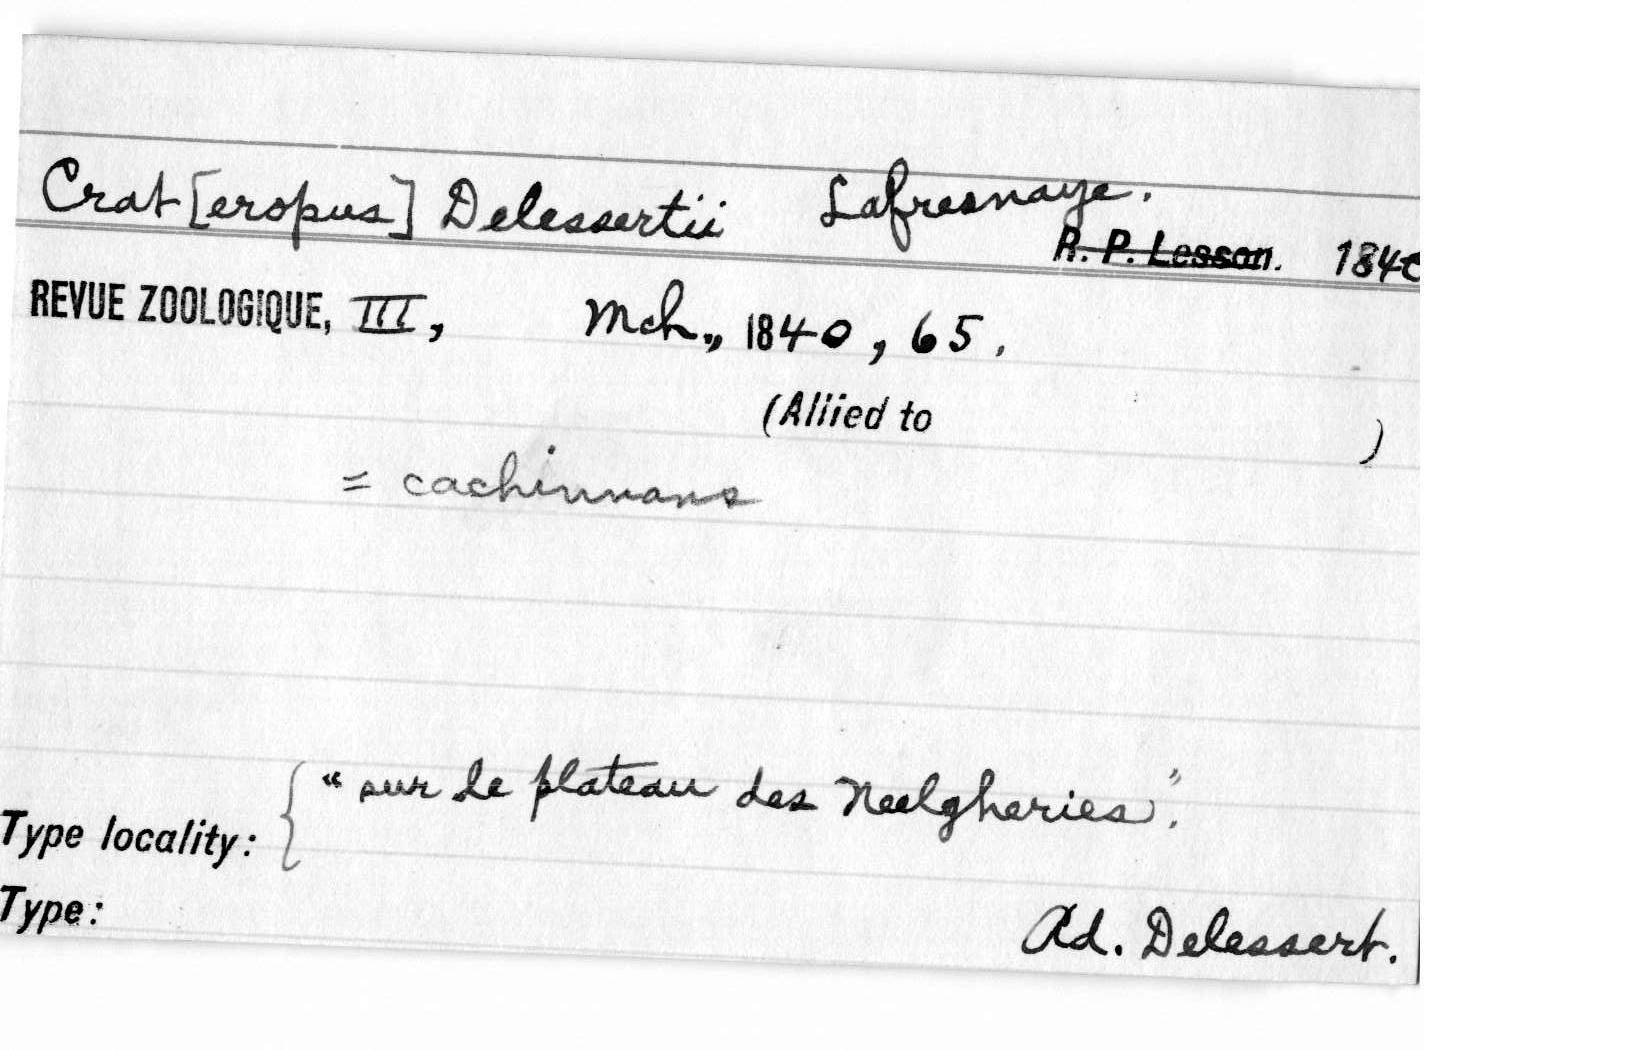 Crat[eropus] Delessertii Lafresnaye.
R. P. Lesson. 1840
REVUE ZOOLOGIQUE, III, Mch., 1840, 65.
(Allied to )
= cachinnans
Type locality: { "sur le plateau des Neelgheries".
Type: Ad. Delessert.